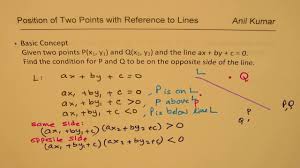 Position of Two Points with Reference to Lines
Anil Kumar
• Basic Concept
Given two points P(x₁, y₁) and Q(x₁, y₁) and the line ax + by + c = 0.
Find the condition for P and Q to be on the opposite side of the line.
L: ax + by + c = 0
ax₁ + by₁ + c = 0, P is on L
ax₁ + by₁ + c > 0 P above L
ax₁ + by₁ + c < 0, P is below line L
same side:
(ax₁ + by₁ + c)(ax₂ + by₂ + c) > 0
opposite side
(ax₁ + by₁ + c)(ax₂ + by₂ + c) < 0
L
Q
P
P
Q